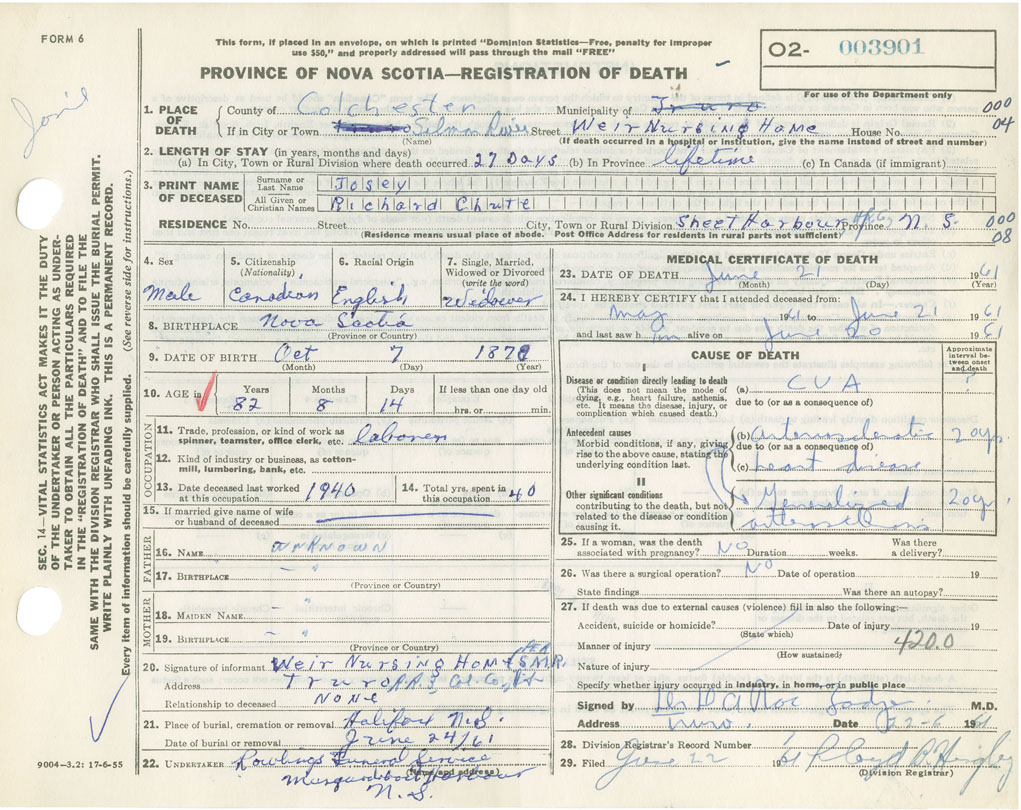 FORM 6
This form, if placed in an envelope, on which is printed "Dominion Statistics—Free, penalty for improper
use $50," and properly addressed will pass through the mail "FREE"
O2- 003901
For use of the Department only
PROVINCE OF NOVA SCOTIA—REGISTRATION OF DEATH
1. PLACE OF DEATH
County of Colchester Municipality of Truro
000
04
If in City or Town Truro Silmon River Street Weir Nursing Home House No.
(Name) (If death occurred in a hospital or institution, give the name instead of street and number)
2. LENGTH OF STAY (in years, months and days)
(a) In City, Town or Rural Division where death occurred 27 Days (b) In Province lifetime (c) In Canada (if immigrant)
3. PRINT NAME OF DECEASED
Surname or Last Name Josey
All Given or Christian Names Richard Chute
RESIDENCE No. Street City, Town or Rural Division Sheet Harbour Hfx Co Province N. S.
000
08
(Residence means usual place of abode. Post Office Address for residents in rural parts not sufficient)
4. Sex
Male
5. Citizenship (Nationality)
Canadian
6. Racial Origin
English
7. Single, Married, Widowed or Divorced (write the word)
Widower
8. BIRTHPLACE Nova Scotia
(Province or Country)
9. DATE OF BIRTH Oct 7 1878
(Month) (Day) (Year)
10. AGE in
Years Months Days If less than one day old
82 8 14 hrs. or min.
OCCUPATION
11. Trade, profession, or kind of work as
spinner, teamster, office clerk, etc. laborer
12. Kind of industry or business, as cotton-
mill, lumbering, bank, etc.
13. Date deceased last worked
at this occupation 1940
14. Total yrs. spent in
this occupation 40
15. If married give name of wife
or husband of deceased
FATHER
16. NAME unknown
17. BIRTHPLACE - "
(Province or Country)
MOTHER
18. MAIDEN NAME - "
19. BIRTHPLACE - "
(Province or Country)
20. Signature of informant Weir Nursing Home Per S.M.R.
Address Truro RR Col. Co.
Relationship to deceased None
21. Place of burial, cremation or removal Halifax N.S.
Date of burial or removal June 24/61
22. UNDERTAKER Rowlings Funeral Service
(Name and address)
Musquodoboit Harbour
N. S.
MEDICAL CERTIFICATE OF DEATH
23. DATE OF DEATH June 21 1961
(Month) (Day) (Year)
24. I HEREBY CERTIFY that I attended deceased from:
May 1961 to June 21 1961
and last saw h im alive on June 20 1961
CAUSE OF DEATH
Approximate interval between onset and death
I
Disease or condition directly leading to death
(This does not mean the mode of
dying, e.g., heart failure, asthenia,
etc. It means the disease, injury, or
complication which caused death.)
(a) CVA ?
due to (or as a consequence of)
Antecedent causes
Morbid conditions, if any, giving
rise to the above cause, stating the
underlying condition last.
(b) Arteriosclerotic 20 yr.
due to (or as a consequence of)
(c) heart disease
II
Other significant conditions
contributing to the death, but not
related to the disease or condition
causing it.
Generalized 20 yr
25. If a woman, was the death
associated with pregnancy? No Duration weeks. Was there
a delivery?
26. Was there a surgical operation? No Date of operation 19
State findings Was there an autopsy?
27. If death was due to external causes (violence) fill in also the following:—
Accident, suicide or homicide? Date of injury 19
(State which)
Manner of injury 420.0
(How sustained)
Nature of injury
Specify whether injury occurred in industry, in home, or in public place
Signed by M.D.
Address Truro. Date 22-6 1961
28. Division Registrar's Record Number
29. Filed June 22 1961
(Division Registrar)
SEC. 14—VITAL STATISTICS ACT MAKES IT THE DUTY
OF THE UNDERTAKER OR PERSON ACTING AS UNDER-
TAKER TO OBTAIN ALL THE PARTICULARS REQUIRED
IN THE "REGISTRATION OF DEATH" AND TO FILE THE
SAME WITH THE DIVISION REGISTRAR WHO SHALL ISSUE THE BURIAL PERMIT.
WRITE PLAINLY WITH UNFADING INK. THIS IS A PERMANENT RECORD.
Every item of information should be carefully supplied. (See reverse side for instructions.)
9004—3.2: 17-6-55